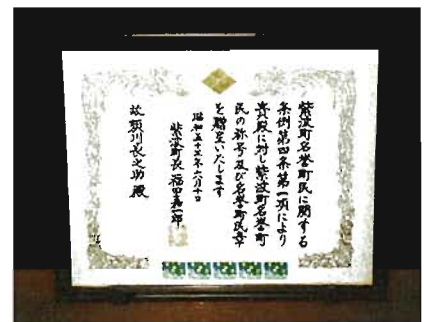 紫波町名誉町民に関する
条例第四条第一項により
貴殿に対し紫波町名誉町
民の称号及び名誉町民章
を贈呈いたします
昭和五十三年六月十日
紫波町長 福田嘉一郎
故 須川長之助 殿